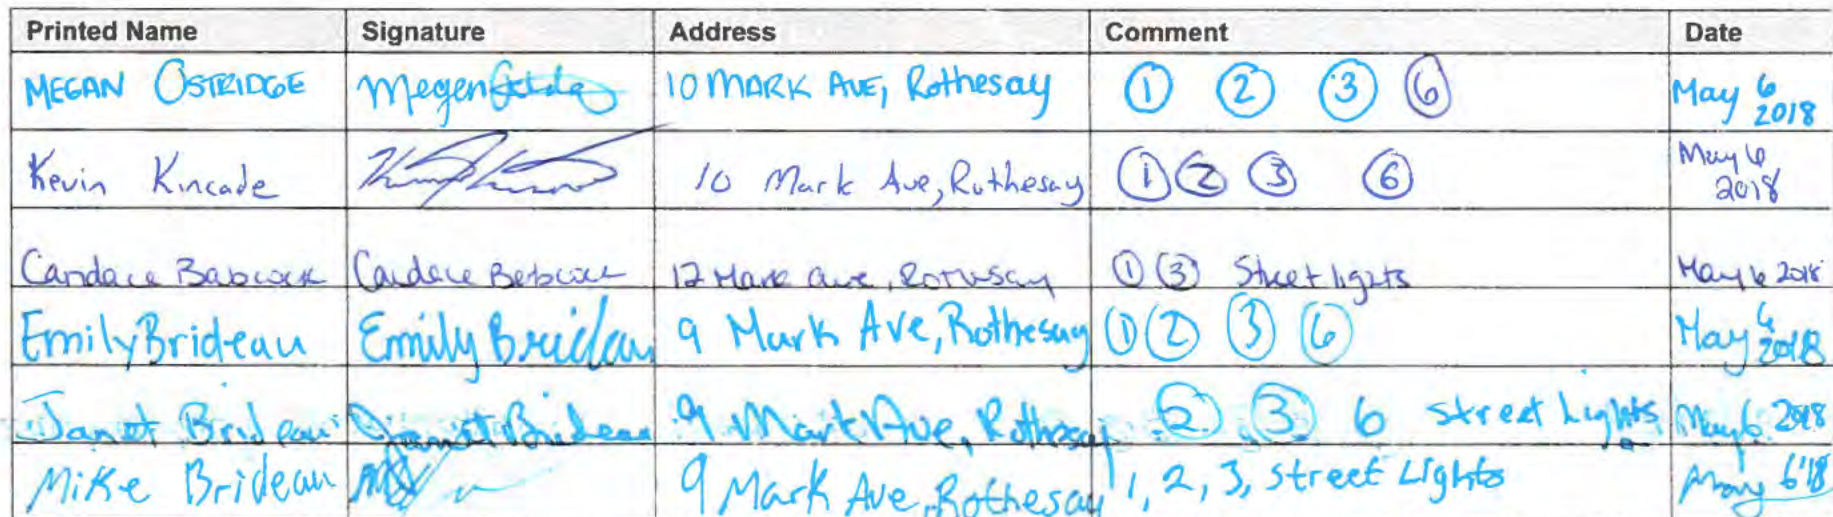 Printed Name Signature Address Comment Date
MEGAN OSTRIDGE Megen 10 MARK AVE, Rothesay ① ② ③ ⑥ May 6 2018
Kevin Kincade 10 Mark Ave, Rothesay ① ② ③ ⑥ May 6 2018
Candace Babcock Candace Babcock 12 Mark Ave, Rothesay ① ③ Street lights May 6 2018
Emily Brideau Emily Brideau 9 Mark Ave, Rothesay ① ② ③ ⑥ May 6 2018
Janet Brideau Janet Brideau 9 Mark Ave, Rothesay ② ③ 6 Street Lights May 6 2018
Mike Brideau 9 Mark Ave, Rothesay 1, 2, 3, Street Lights May 6'18